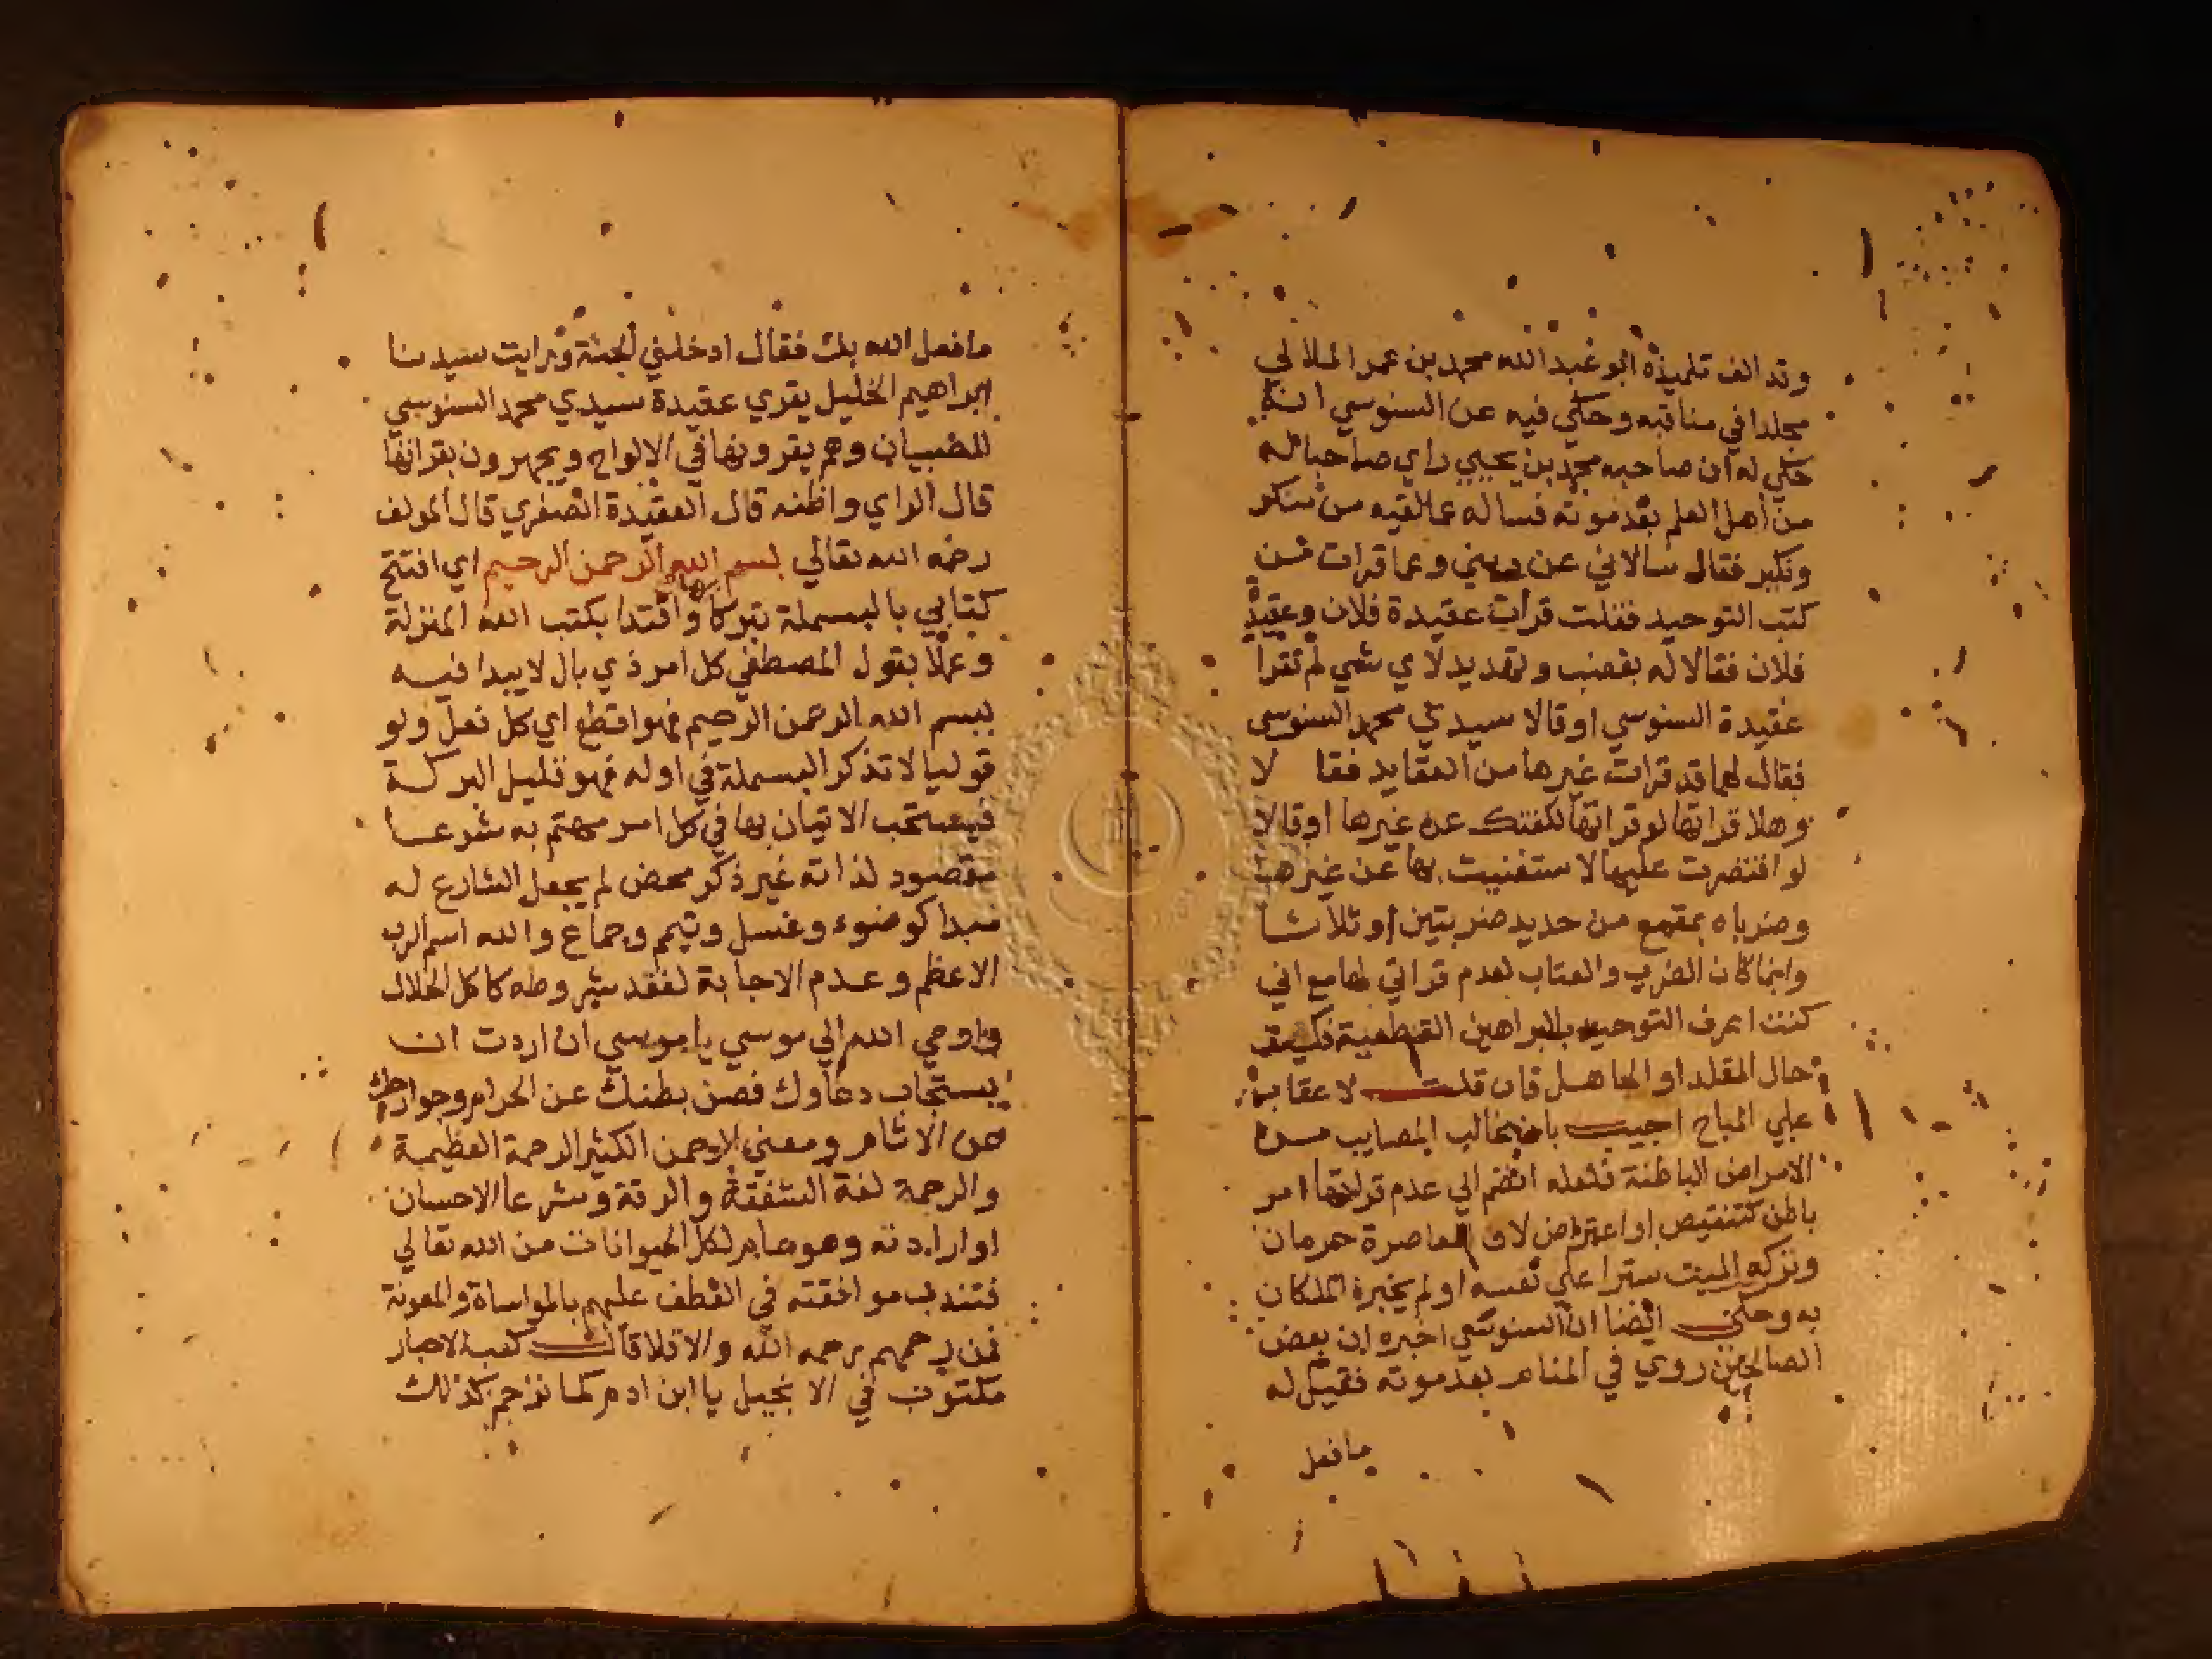 وقد الف تلميذه ابو عبد الله محمد بن عمر الملالي
مجلدا في مناقبه وحكي فيه عن السنوسي انه
حكي له ان صاحبه محمد بن يحيي راي صاحبا له
من اهل العلم بعد موته فساله عما لقيه من منكر
ونكير فقال سالاني عن ديني وعما قرات من
كتب التوحيد فقلت قرات عقيدة فلان وعقيدة
فلان فقالا له بغضب وتهديد لاي شي لم تقرا
عقيدة السنوسي او قالا سيدي محمد السنوسي
فقال لهما قد قرات غيرها من العقايد فقا لا
وهلا قراتها لو قراتها لكفتك عن غيرها او قالا
لو اقتصرت عليها لا ستغنيت بها عن غيرها
وضرباه بمقمع من حديد ضربتين او ثلاثا
وانما كان الضرب والعتاب لعدم قراتي لها مع اني
كنت اعرف التوحيد بالبراهين القطعية فكيف
حال المقلد او الجاهل فان قلت لا عقاب
علي المباح اجيب بان غالب المصايب من
الامراض الباطنة فلعله انضم الي عدم قراتها امر
باطن كتنقيص او اعتراض لان المعاصرة حرمان
وتركه الميت سترا علي نفسه او لم يخبره الملكان
به وحكي ايضا ان السنوسي اخبره ان بعض
الصالحين روي في المنام بعد موته فقيل له
ما فعل
ما فعل الله بك فقال ادخلني الجنة ورايت سيدنا
ابراهيم الخليل يقري عقيدة سيدي محمد السنوسي
للصبيان وهم يقرونها في الالواح ويجهرون بقراتها
قال الراي واظنه قال العقيدة الصغري قال المولف
رحمه الله تعالي بسم الله الرحمن الرحيم اي افتتح
كتابي بالبسملة تبركا بها واقتدا بكتب الله المنزلة
وعملا بقول المصطفي كل امر ذي بال لا يبدا فيه
ببسم الله الرحمن الرحيم فهو اقطع اي كل فعل ولو
قوليا لا تذكر البسملة في اوله فهو قليل البركة
فيستحب الاتيان بها في كل امر مهتم به شرعا
مقصود لذاته غير ذكر محض لم يجعل الشارع له
مبدا كوضوء وغسل وتيمم وجماع والله اسم الرب
الاعظم وعدم الاجابة لفقد شروطه كاكل الحلال
واوحي الله الي موسي يا موسي ان اردت ان
يستجاب دعاوك فصن بطنك عن الحرام وجوارحك
عن الاثام ومعني الرحمن الكثير الرحمة العظيمة
والرحمة لغة الشفقة والرقة وشرعا الاحسان
او ارادته وهو عام لكل الحيوانات من الله تعالي
فتندب موافقته في العطف عليهم بالمواساة والمعونة
فمن رحمهم رحمه الله والا فلا قال كعب الاحبار
مكتوب في الانجيل يا ابن ادم كما ترحم كذلك